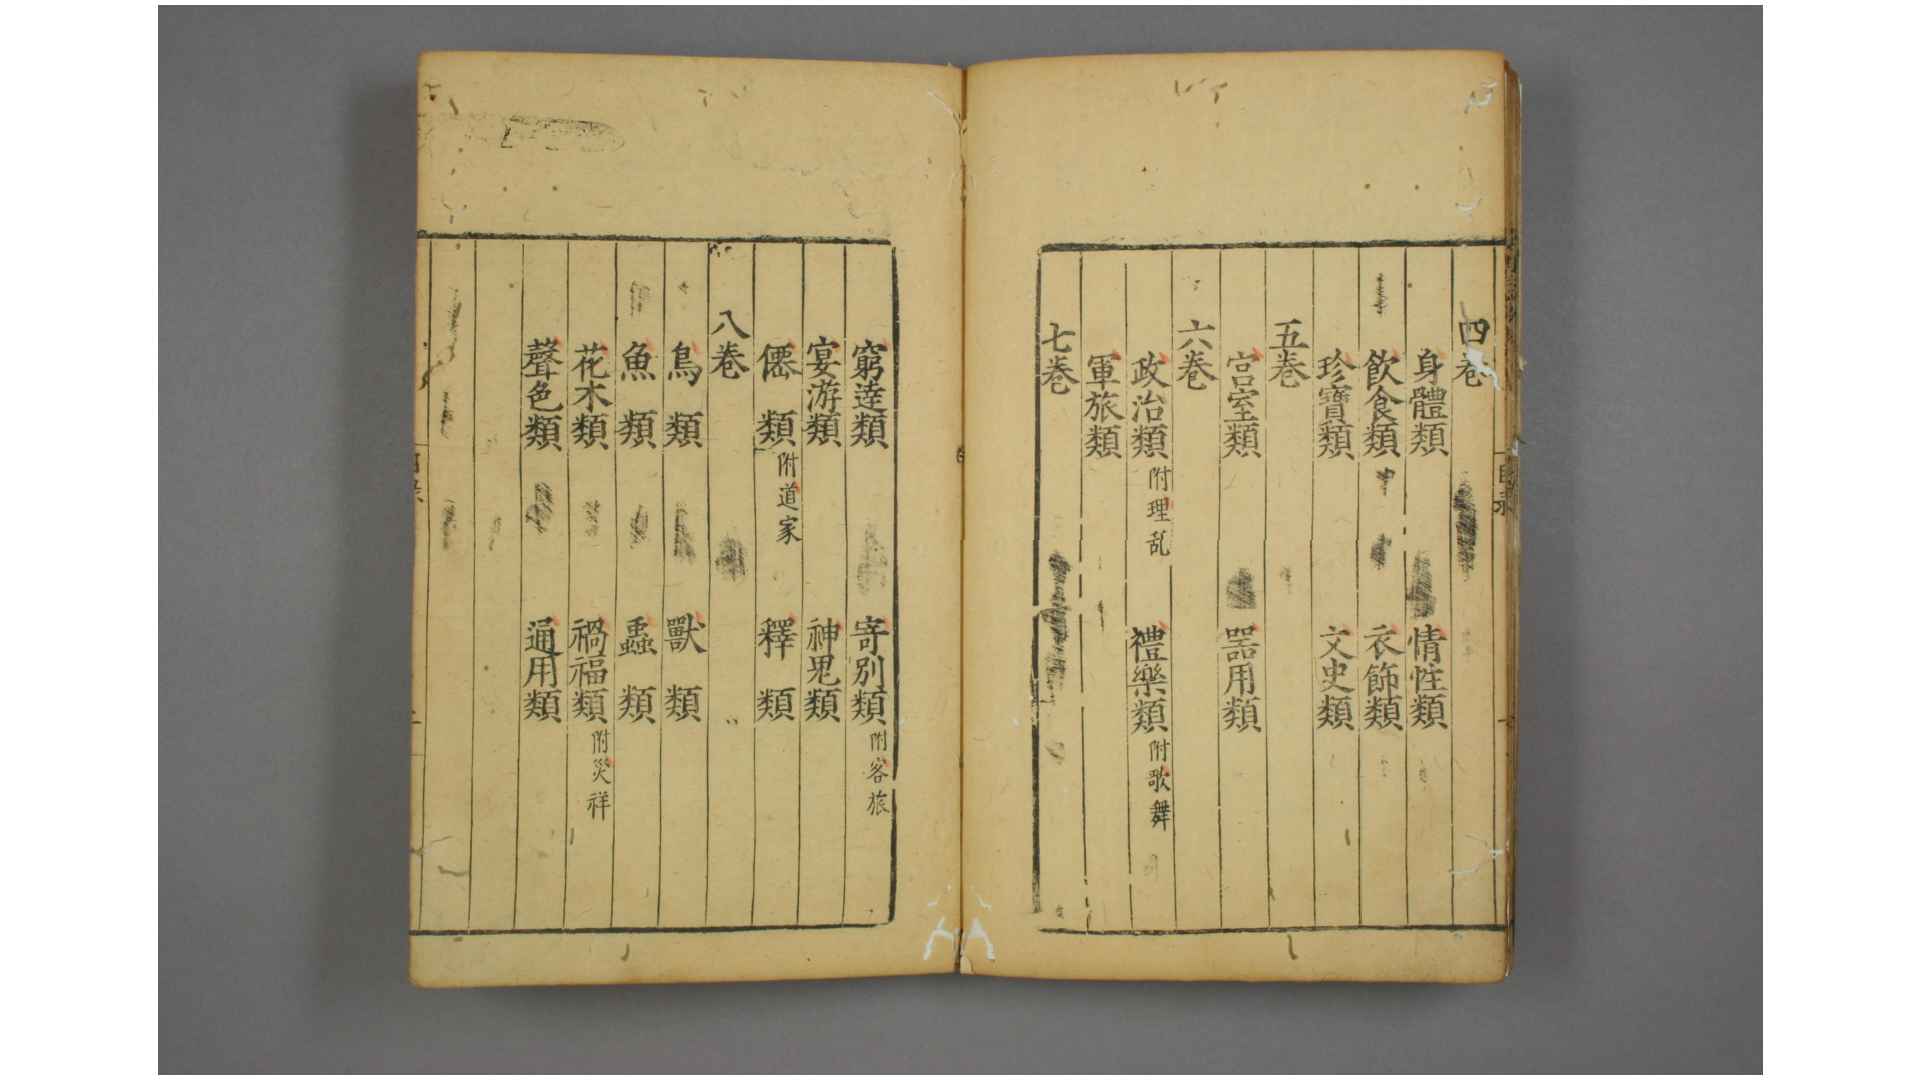 四巻
身體類 情性類
飲食類 衣飾類
珍寶類 文史類
五巻
宫室類 器用類
六巻
政治類附理乱 禮樂類附歌舞
軍旅類
七巻
窮逹類 寄別類附客旅
宴游類 神鬼類
僊類附道家 釋類
八巻
鳥類 獸類
魚類 蟲類
花木類 禍福類附災祥
聲色類 通用類
目录